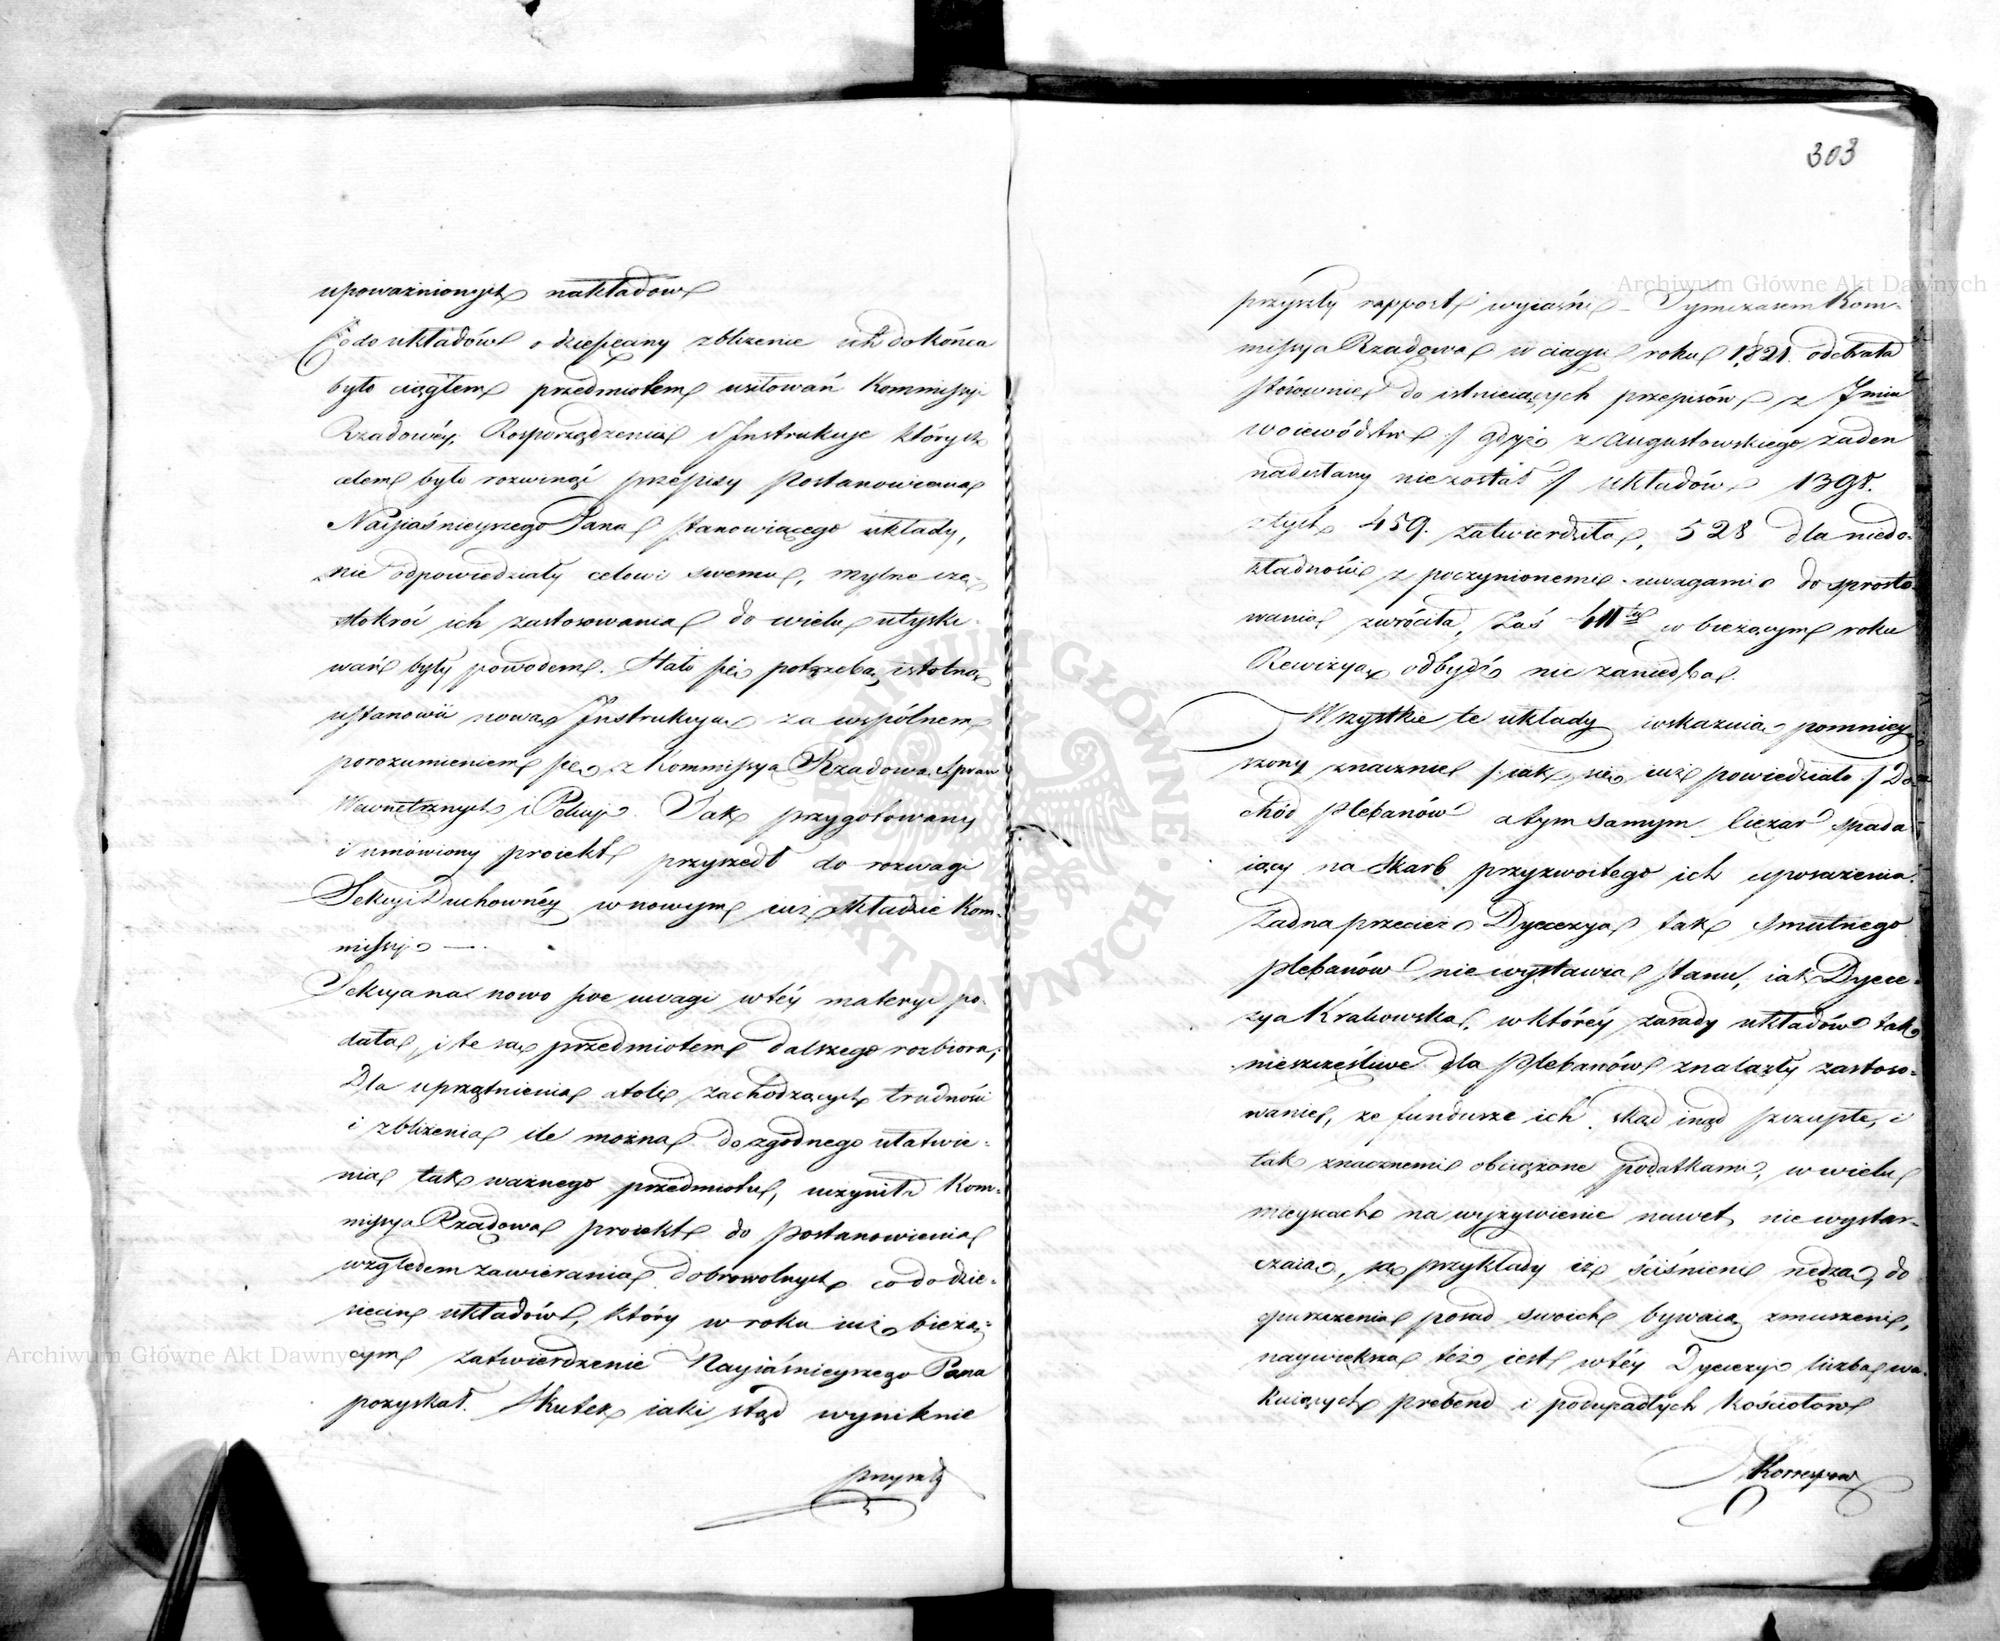 upoważnionych nakładów
Co do układów o dziesięciny zbliżenie ich do końca
było ciągłem przedmiotem usiłowań Kommissyi
Rządowéy, Rosporządzenia i Instrukcje których
celem było rozwinąć przepisy Postanowienia
Nayjaśnieyszego Pana stanowiącego układy,
nie odpowiedziały celowi swemu, mylne czę-
stokroć ich zastosowania do wielu utyski-
wań były powodem. Stało się potrzebą istotną
ustanowić nową Instrukcyą za wspólnem
porozumieniem się z Kommissyą Rządową Spraw
Wewnętrznych i Policyi. Tak przygotowany
i umówiony proiekt przyszedł do rozwagi
Sekcyi Duchownéy w nowym iuż składzie Kom-
missyi —
Sekcya na nowo swe uwagi w téy materyi po-
dała, i te są przedmiotem dalszego rozbioru,
Dla uprzątnienia atoli zachodzących trudności
i zbliżenia ile można do zgodnego ułatwie-
nia tak ważnego przedmiotu, uczyniła Kom-
missya Rządowa proiekt do postanowienia
względem zawierania dobrowolnych co do dzie-
sięcin układów, który w roku iuż bieżą-
cym zatwierdzenie Nayjaśnieyszego Pana
pozyskał. Skutek iaki stąd wyniknie
przyszły
303
przyszły rapport wyiaśni – Tymczasem Kom-
missya Rządowa w ciągu roku 1821. odebrała
stósownie do istnieiących przepisów z 7miu
woiewództw /: gdyż z Augustowskiego żaden
nadesłany nie został :/ układów 1398.
z tych 459. zatwierdziła, 528 dla niedo-
kładności z poczynionemi uwagami do sprosto-
wania zwróciła, Zaś 411tu w bieżącym roku
Rewizyą odbydź nie zaniedba.
Wszystkie te układy wskazuią pomniey-
szony znacznie /: iak się iuż powiedziało :/ Do-
chód Plebanów a tym samym ciężar spada-
iący na Skarb przyzwoitego ich uposażenia.
Żadna przecież Dyecezya tak smutnego
Plebanów nie wystawia stanu, iak Dyece-
zya Krakowska, w któréy zasady układów tak
nieszczęśliwe dla Plebanów znalazły zastoso-
wanie, że fundusze ich skąd inąd szczupłe, i
tak znacznemi obciążone podatkami, w wielu
mieyscach na wyżywienie nawet nie wystar-
czaią, są przykłady iż ściśnieni nędzą, do
opuszczenia posad swoich bywaią zmuszeni,
naywiększa też iest w téy Dyecezyi liczba wa-
kuiących prebend i podupadłych Kościołów
Archiwum Główne Akt Dawnych
Archiwum Główne Akt Dawnych
ARCHIWUM GŁÓWNE AKT DAWNYCH